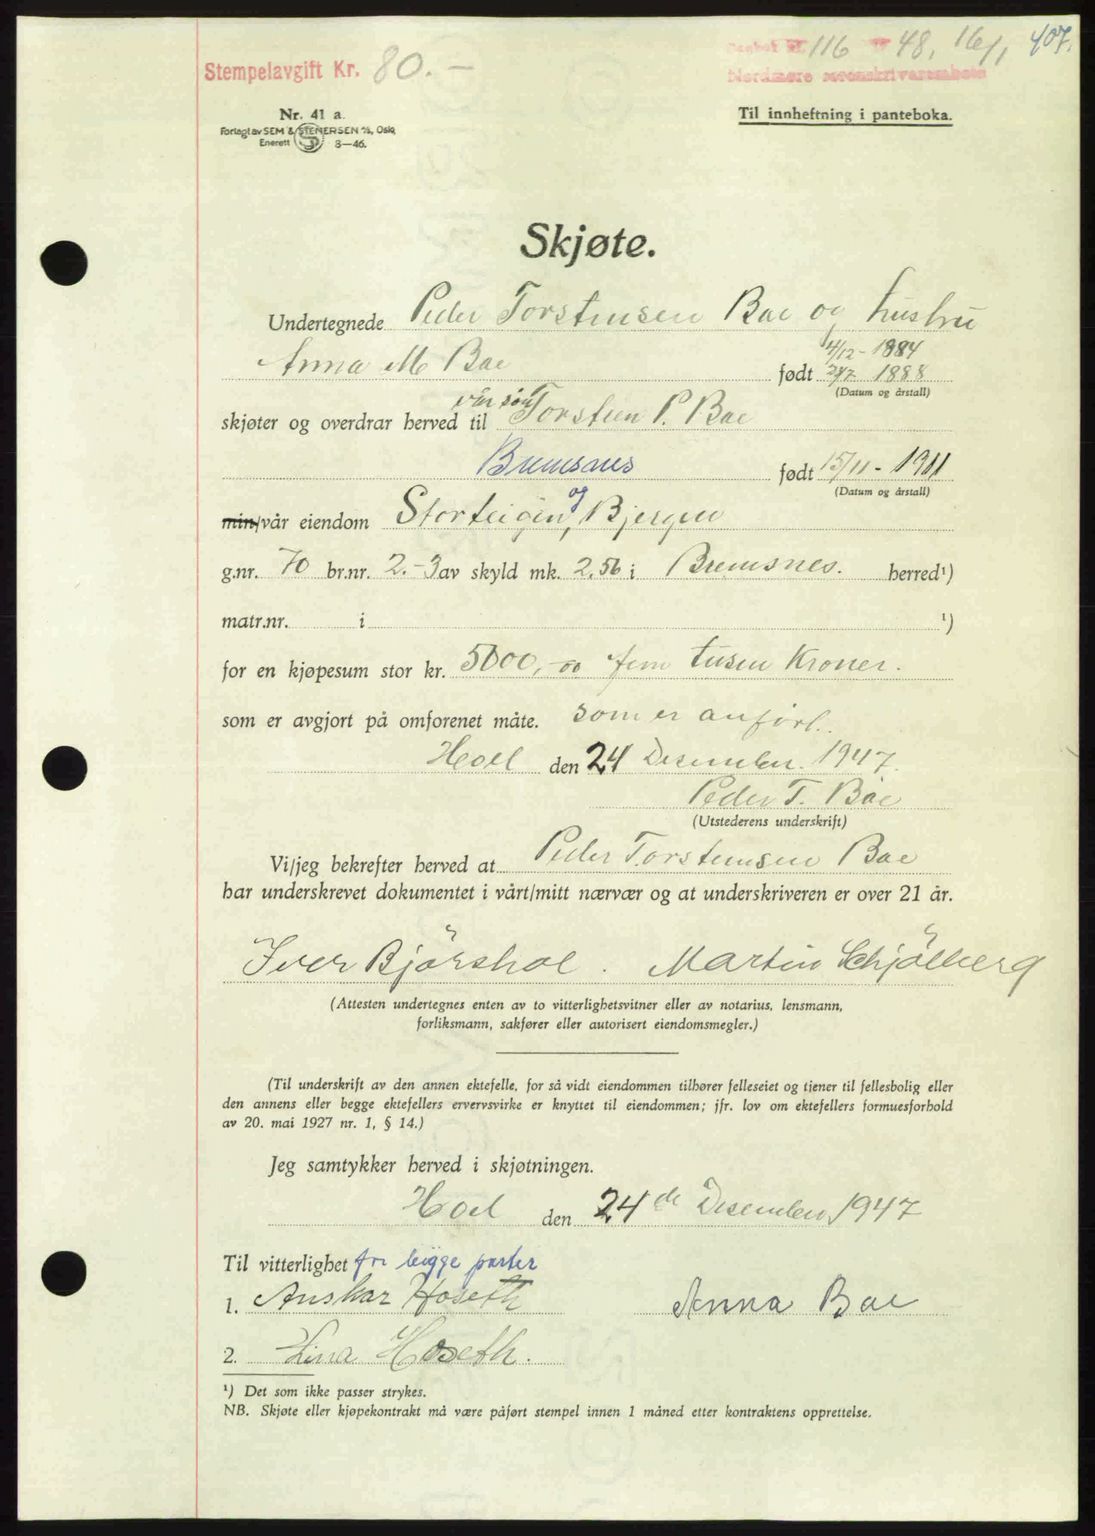 Stempelavgift Kr. 80.—
Dagbok nr. 116 48, 16/1 407.
Nordmøre sorenskriverembete
Nr. 41 a.
Til innheftning i panteboka.
Forlagt av SEM & STENERSEN A/S, Oslo,
Enerett S 8—46.
Skjøte.
Undertegnede Peder Torstensen Bae og hustru
4/12 - 1884
Anna M Bae født 28/7 1888
(Datum og årstall)
vår søn
skjøter og overdrar herved til Torstein P. Bae
Bremsnes født 15/11 - 1911
(Datum og årstall)
min/vår eiendom Storteigen, og Bjergen
g.nr. 70 br.nr. 2.-3 av skyld mk. 2.56 i Bremsnes. herred¹)
matr.nr. i ¹)
for en kjøpesum stor kr. 5000,-00 fem tusen Kroner.
som er avgjort på omforenet måte. som er anført.
Hoel den 24 Desember. 1947.
Peder T. Bae
(Utstederens underskrift)
Vi/jeg bekrefter herved at Peder Torstensen Bae
har underskrevet dokumentet i vårt/mitt nærvær og at underskriveren er over 21 år.
Iver Bjørshol. Martin Schjölberg
(Attesten undertegnes enten av to vitterlighetsvitner eller av notarius, lensmann,
forliksmann, sakfører eller autorisert eiendomsmegler.)
(Til underskrift av den annen ektefelle, for så vidt eiendommen tilhører felleseiet og tjener til fellesbolig eller
den annens eller begge ektefellers ervervsvirke er knyttet til eiendommen; jfr. lov om ektefellers formuesforhold
av 20. mai 1927 nr. 1, § 14.)
Jeg samtykker herved i skjøtningen.
Hoel den 24de Desember 1947
Til vitterlighet for begge parter
1. Anskar Hoseth Anna Bae
2. Lina Hoseth.
¹) Det som ikke passer strykes.
NB. Skjøte eller kjøpekontrakt må være påført stempel innen 1 måned etter kontraktens opprettelse.